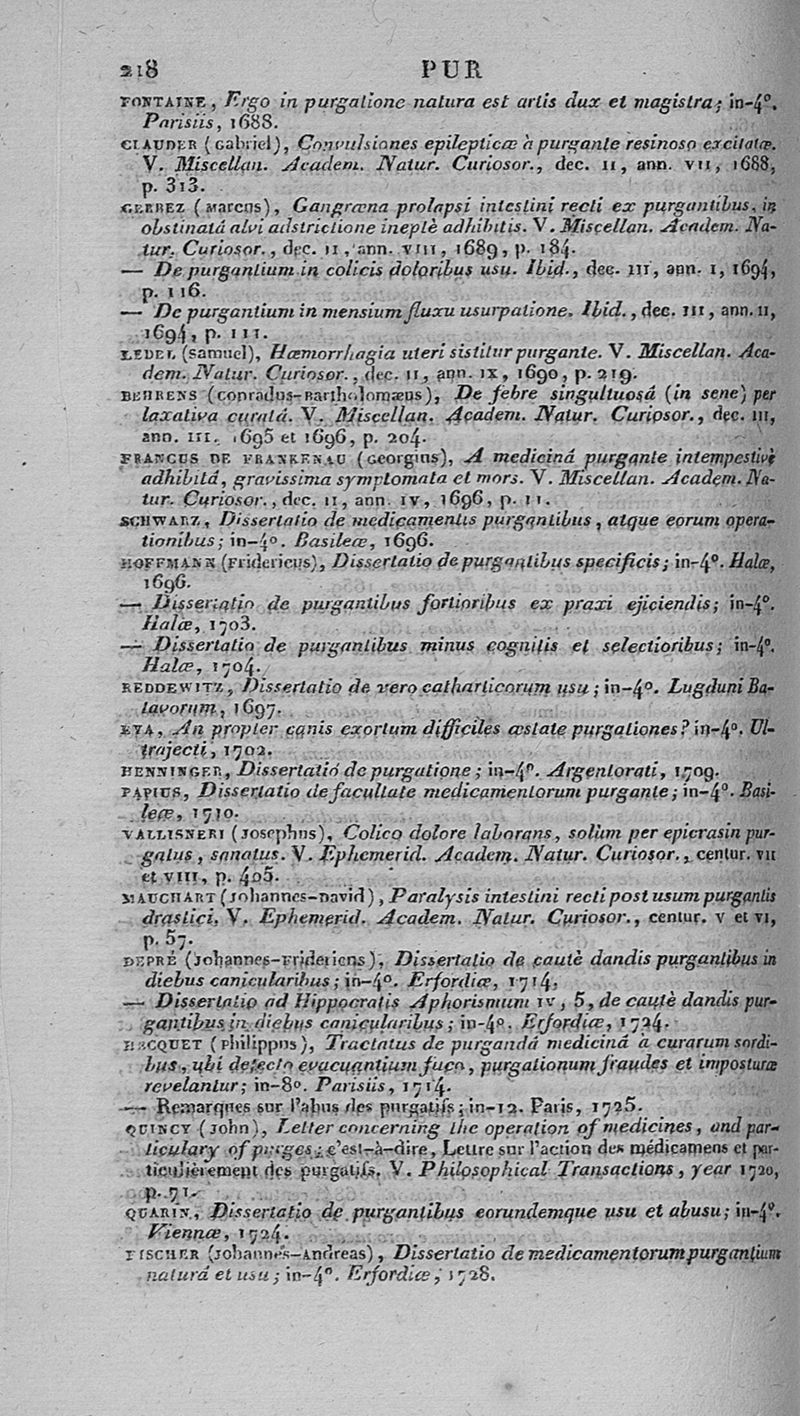 218 PUR
FONTAINE, Ergo in purgatione natura est artis dux et magistra; in-4°.
Parisiis, 1688.
CLAUDER (Gabriel), Convulsiones epilepticæ à purgante resinoso excitatæ.
V. Miscellan. Academ. Natur. Curiosor., dec. II, ann. VII, 1688,
p. 313.
GERBEZ (Marcus), Gangræna prolapsi intestini recti ex purgantibus, in
obstinatâ alvi adstrictione ineptè adhibitis. V. Miscellan. Academ. Na-
tur. Curiosor., dec. II, ann. VIII, 1689, p. 184.
— De purgantium in colicis doloribus usu. Ibid., dec. III, ann. I, 1694,
p. 116.
— De purgantium in mensium fluxu usurpatione. Ibid., dec. III, ann. II,
1694, p. 111.
LEDEL (Samuel), Hæmorrhagia uteri sistitur purgante. V. Miscellan. Aca-
dem. Natur. Curiosor., dec. II, ann. IX, 1690, p. 219.
BEHRENS (Conradus-Bartholomæus), De febre singultuosâ (in sene) per
laxativa curatâ. V. Miscellan. Academ. Natur. Curiosor., dec. III,
ann. III, 1695 et 1696, p. 204.
FRANCUS DE FRANKENAU (Georgius), A medicinâ purgante intempestivè
adhibitâ, gravissima symptomata et mors. V. Miscellan. Academ. Na-
tur. Curiosor., dec. II, ann. IV, 1696, p. 11.
SCHWARZ, Dissertatio de medicamentis purgantibus, atque eorum opera-
tionibus; in-4°. Basileæ, 1696.
HOFFMANN (Fridericus), Dissertatio de purgantibus specificis; in-4°. Halæ,
1696.
— Dissertatio de purgantibus fortioribus ex praxi ejiciendis; in-4°.
Halæ, 1703.
— Dissertatio de purgantibus minus cognitis et selectioribus; in-4°.
Halæ, 1704.
REDDEWITZ, Dissertatio de vero catharticorum usu; in-4°. Lugduni Ba-
tavorum, 1697.
EYA, An propter canis exortum difficiles æstate purgationes? in-4°. Ul-
trajecti, 1702.
HENNINGER, Dissertatio de purgatione; in-4°. Argentorati, 1709.
PAPIUS, Dissertatio de facultate medicamentorum purgante; in-4°. Basi-
leæ, 1710.
VALLISNERI (Josephus), Colico dolore laborans, solùm per epicrasin pur-
gatus, sanatus. V. Ephemerid. Academ. Natur. Curiosor., centur. VII
et VIII, p. 405.
MAUCHART (Johannes-David), Paralysis intestini recti post usum purgantis
drastici. V. Ephemerid. Academ. Natur. Curiosor., centur. V et VI,
p. 57.
DEPRÉ (Johannes-Fridericus), Dissertatio de cautè dandis purgantibus in
diebus canicularibus; in-4°. Erfordiæ, 1714.
— Dissertatio ad Hippocratis Aphorismum IV, 5, de cautè dandis pur-
gantibus in diebus canicularibus; in-4°. Erfordiæ, 1724.
HECQUET (Philippus), Tractatus de purgandâ medicinâ à curarum sordi-
bus, ubi detecto evacuantium fuco, purgationum fraudes et imposturæ
revelantur; in-8°. Parisiis, 1714.
— Remarques sur l'abus des purgatifs; in-12. Paris, 1725.
QUINCY (John), Letter concerning the operation of medicines, and par-
ticulary of purges; c'est-à-dire, Lettre sur l'action des médicamens et par-
ticulièrement des purgatifs. V. Philosophical Transactions, year 1720,
p. 71.
QUARIN, Dissertatio de purgantibus eorundemque usu et abusu; in-4°.
Viennæ, 1724.
FISCHER (Johannes-Andreas), Dissertatio de medicamentorum purgantium
naturâ et usu; in-4°. Erfordiæ, 1728.